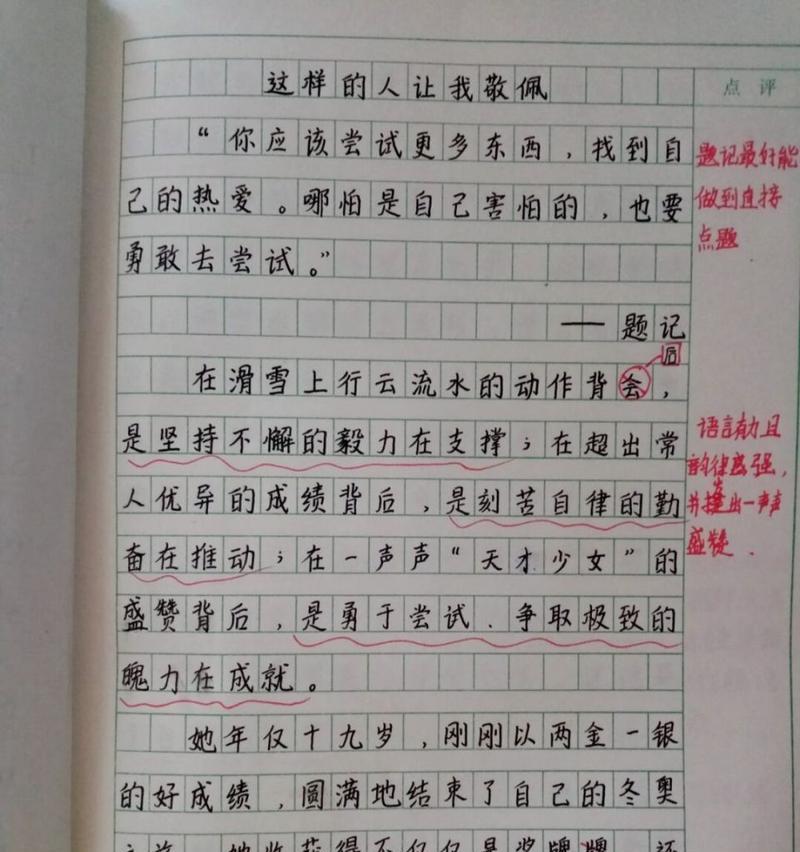 这样的人让我敬佩
点评
“你应该尝试更多东西，找到自
己的热爱。哪怕是自己害怕的，也要
勇敢去尝试。”
题记最好能
做到直接
点题
——题记
后
在滑雪上行云流水的动作背会，
是坚持不懈的毅力在支撑；在超出常
人优异的成绩背后，是刻苦自律的勤
奋在推动；在一声声“天才少女”的
盛赞背后，是勇于尝试、争取极致的
魄力在成就。
语言有力且
韵律感强，
并 出一声声
盛赞．
她年仅十九岁，刚刚以两金一银
的好成绩，圆满地结束了自己的冬奥
之旅，她收获得不仅仅是奖牌，还